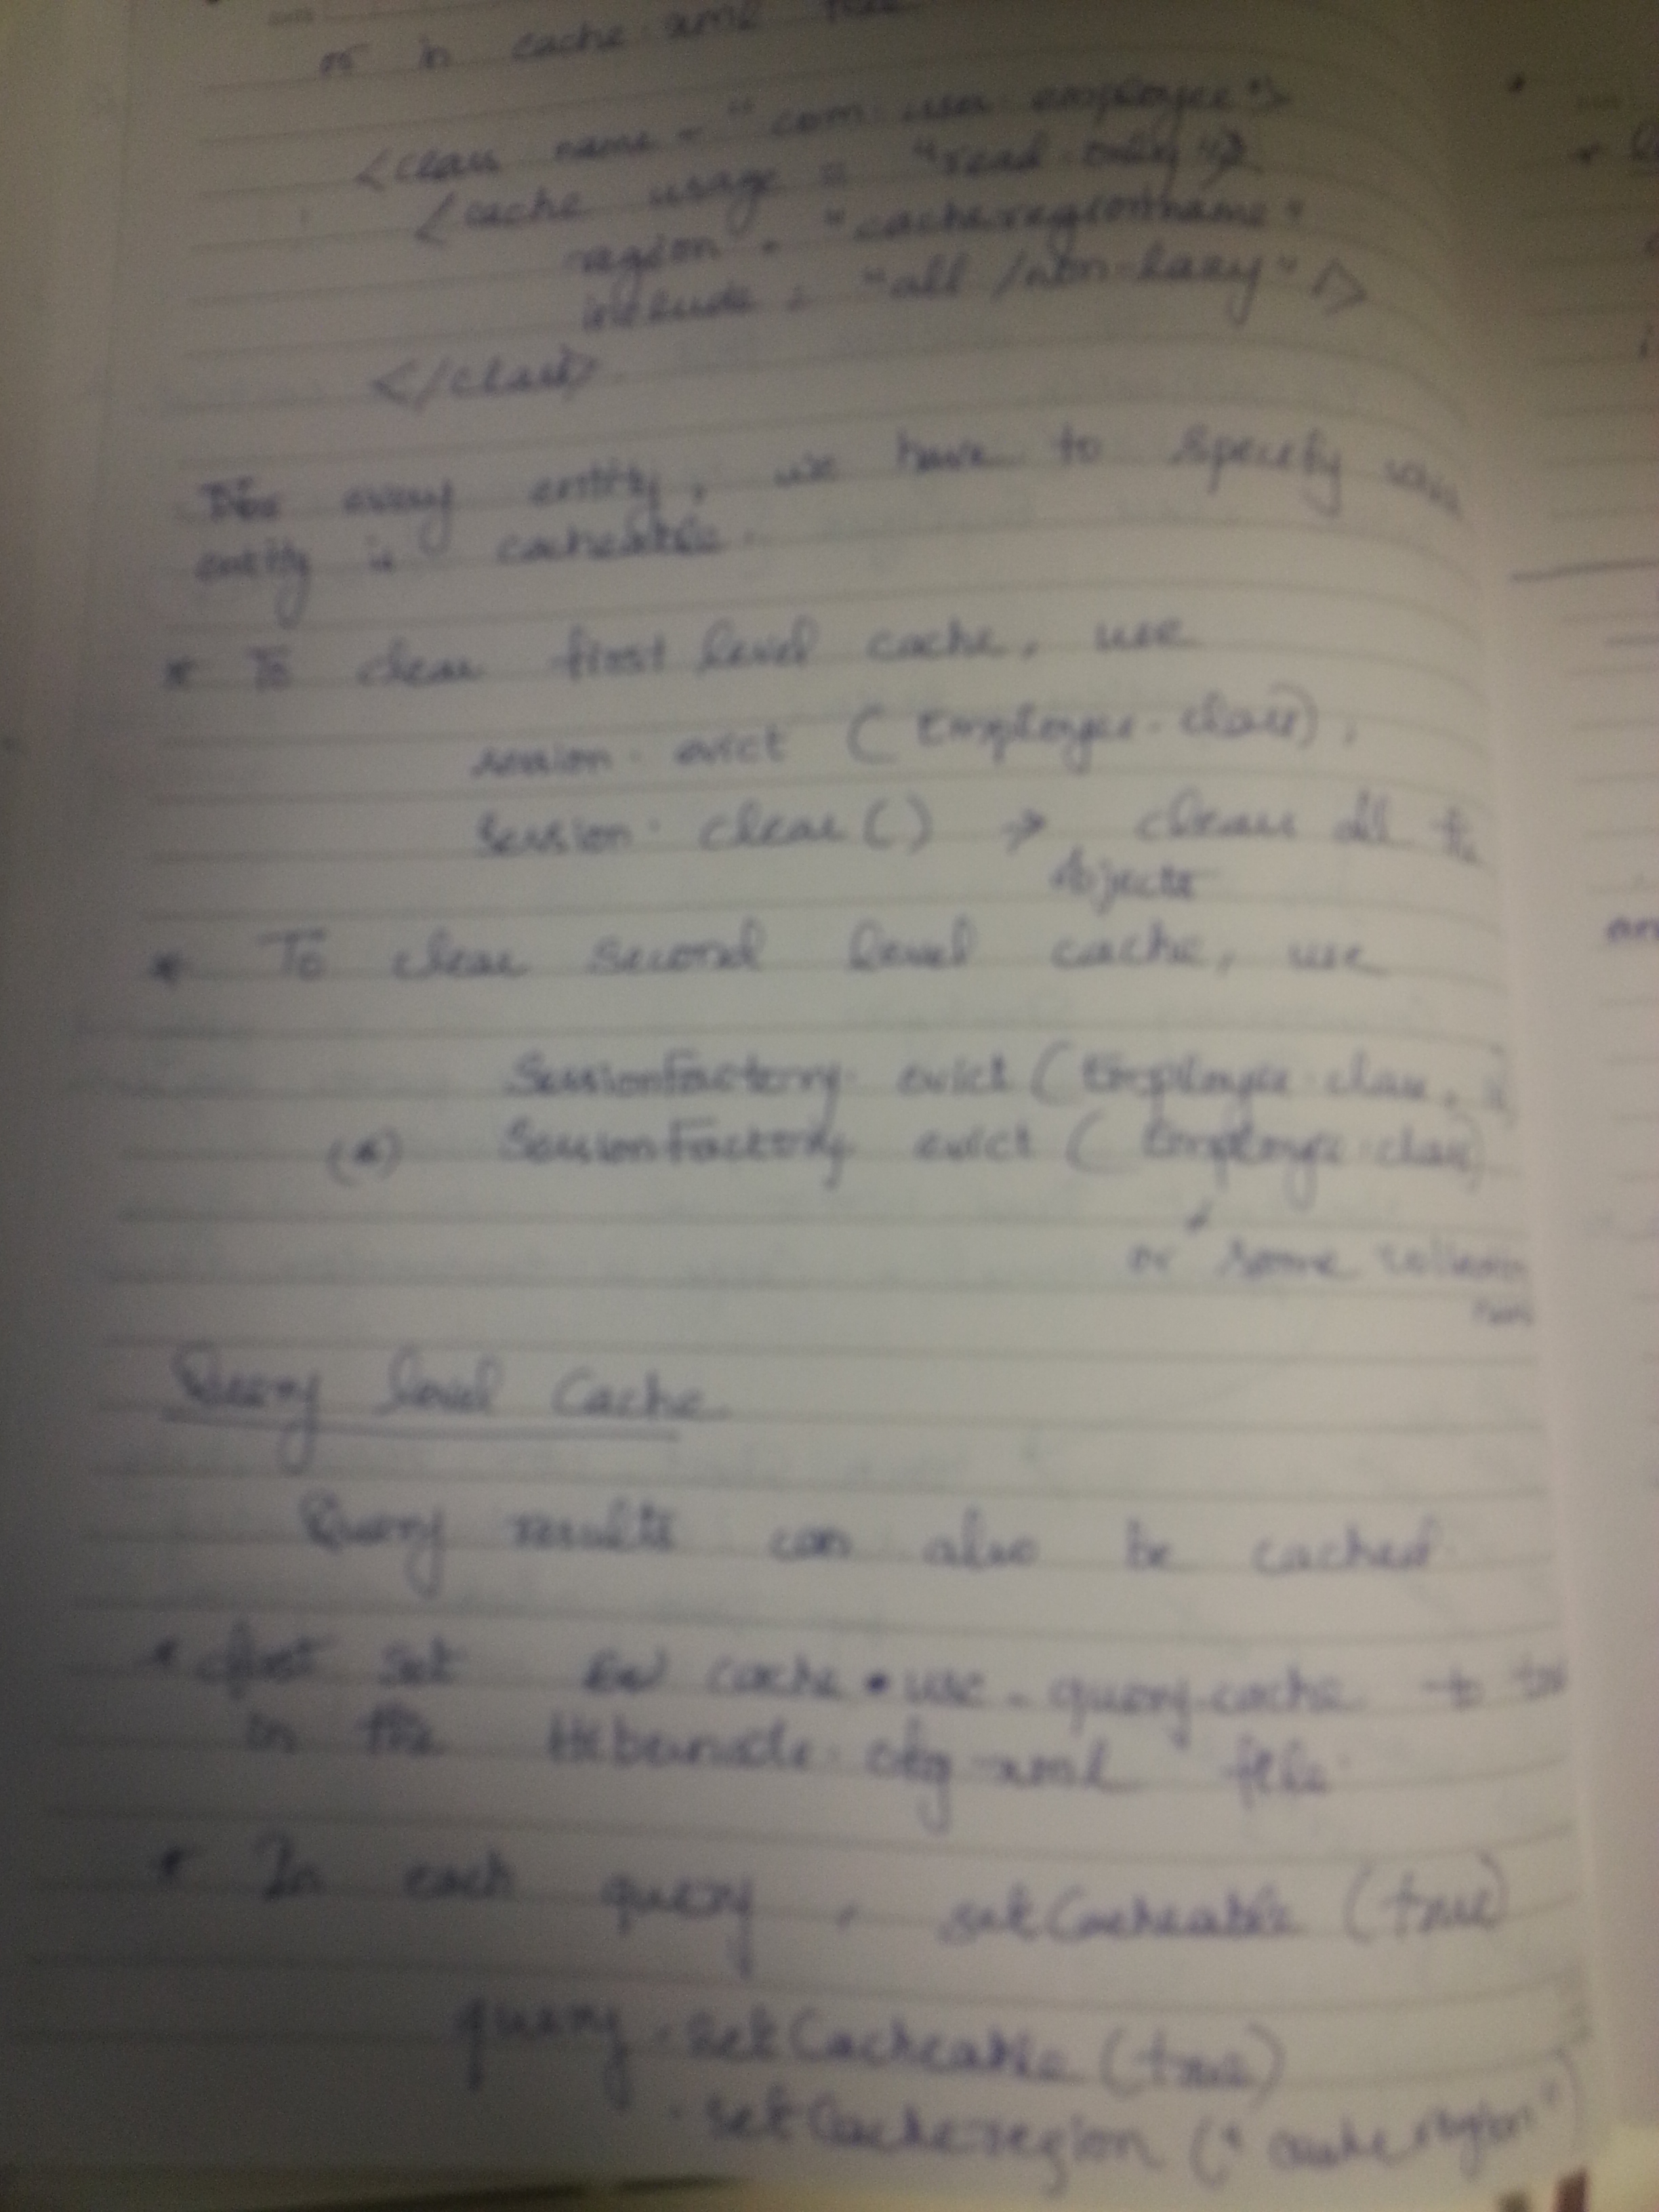 or in cache xml file
<class name = "com.user.employee">
<cache usage = "read-only"
region = "cacheregionname"
include = "all/non-lazy" />
</class>
For every entity, we have to specify
entity is cacheable.
* To clear first level cache, use
session. evict (Employee.class).
Session. clear() → clears all the
objects
* To clear second level cache, use
SessionFactory. evict (Employee.class,
SessionFactory evict (Employee.class)
or some
Query level Cache
Query results can also be cached
* first set cache.use_query_cache to
in the Hibernate cfg.xml file
* In each query, setCacheable (true)
query.setCacheable (true)
.setCacheregion ("cacheregion")
an